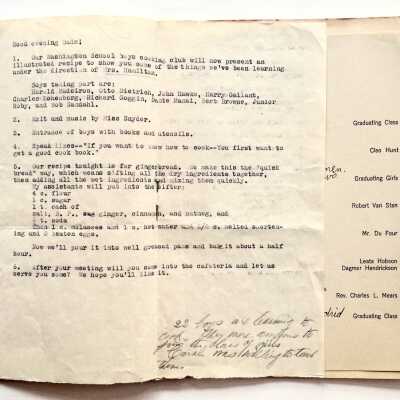 Good evening Dads!
1. Our Washington School boys cooking club will now present an
illustrated recipe to show you some of the things we've been learning
under the direction of Mrs. Hamilton.
Boys taking part are:
Harold Madeiros, Otto Dietrich, John Hawks, Harry Gallant,
Charles Rohenberg, Richard Goggin, Dante Massi, Herb Browne, Junior
Roby, and Bob Sandahl.
2. Exit and music by Miss Snyder.
3. Entrance of boys with books and utensils.
4. Speak lines--"If you want to know how to cook--You first want to
get a good cook book."
5. Our recipe tonight is for gingerbread. We make this the "quick
bread" way, which means sifting all the dry ingredients together,
then adding all the wet ingredients and mixing them quickly.
My assistants will put into the sifter:
4 c. flour
1 c. sugar
1 t. each of
salt, B. P., ginger, cinnamon, and nutmeg, and
t. soda
Then 1 c. molasses and 1 c. hot water and c. melted shorten-
ing and 2 beaten eggs.
Now we'll pour it into well greased pans and bake it about a half
hour.
6. After your meeting will you come into the cafeteria and let us
serve you some? We hope you'll like it.
22 boys are learning to
cook. They were anxious to
join the class of girls
to teach
them.
Graduating Class
Cleo Hunt
Graduating Girls
Robert Van Sten
Mr. Du Four
Leata Hobson
Dagmar Hendrickson
Rev. Charles L. Mears
Graduating Class